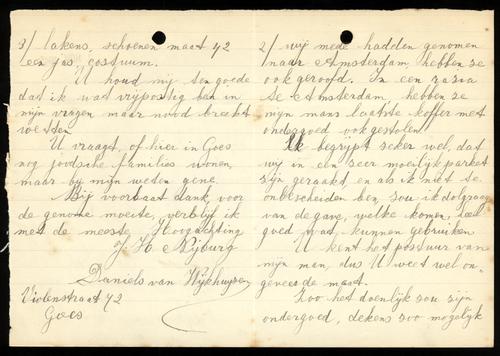 2/ wij mede hadden genomen
naar Amsterdam, hebben ze
ook geroofd. In een razia
te Amsterdam, hebben ze
mijn mans laatste koffer met
ondergoed ook gestolen.
U begrijpt zeker wel, dat
wij in een zeer moeilijk parket
zijn geraakt, en als ik niet te
onbescheiden ben, zou ik dolgraag
van de gave, welke komen, heel
goed wat, kunnen gebruiken
U kent het postuur van
mijn man, dus U weet wel on-
geveer de maat.
Zoo het doenlijk zou zijn
ondergoed, dekens zoo mogelijk
3/ lakens, schoenen maat 42
een jas, costuum.
U houd mij ten goede
dat ik wat vrijpostig ben in
mijn vragen maar nood breekt
wetten.
U vraagt, of hier in Goes
nog joodsche families wonen,
maar bij mijn weten gene.
Bij voorbaat dank, voor
de genome moeite, verblijf ik
met de meeste Hoogachting
J. H. Nijburg
Daniels van Wijkhuyzen
Violenstraat 42
Goes